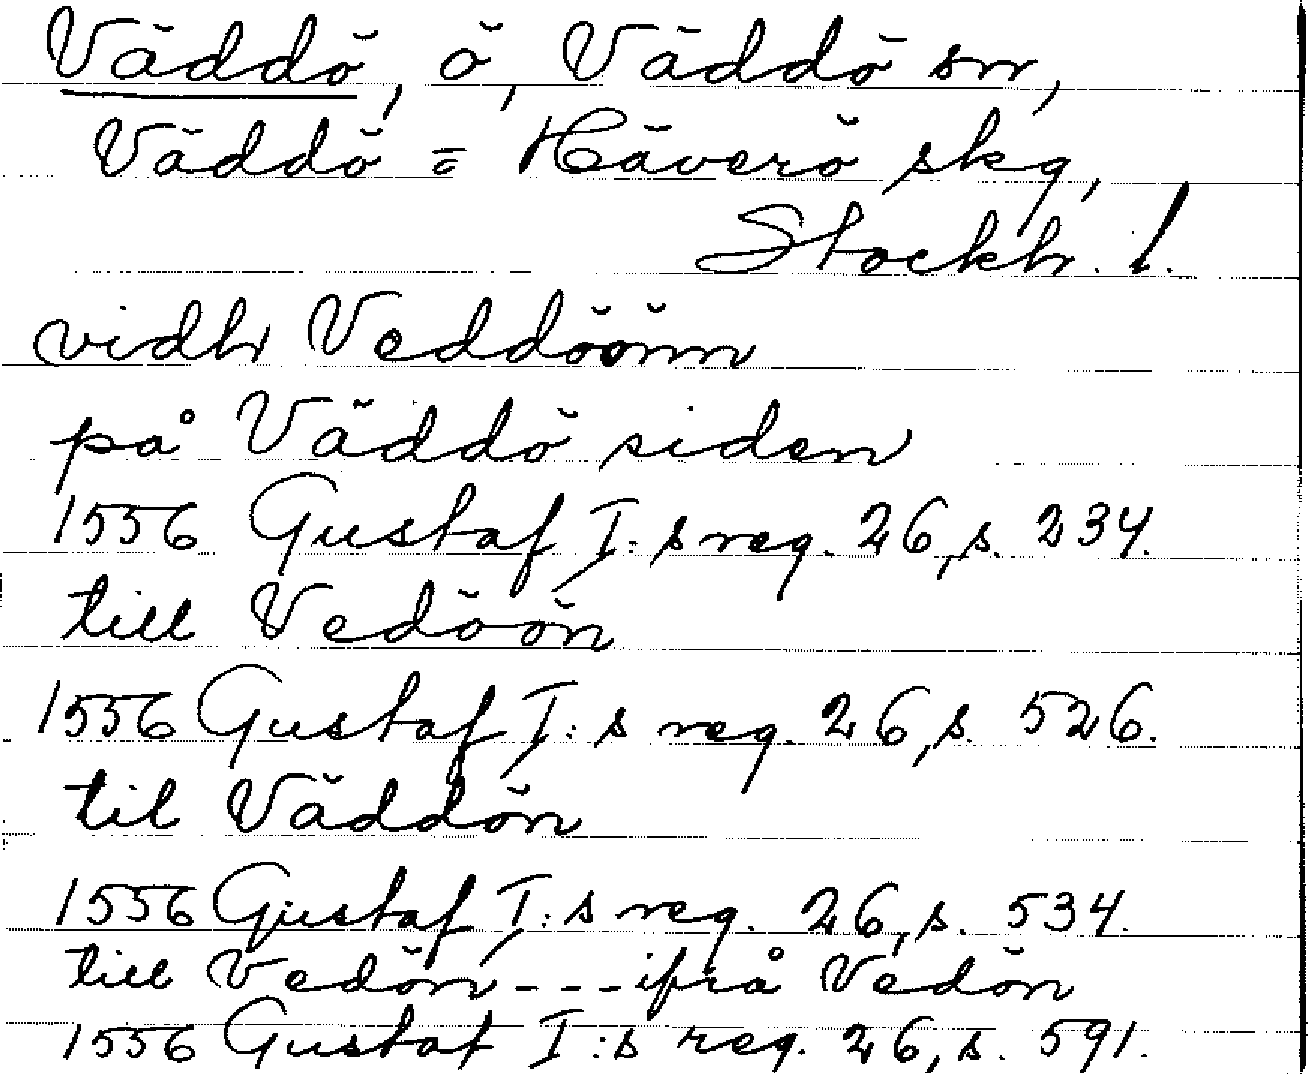 Väddö, ö, Väddö sn,
Väddö = Häverö skg,
Stockh. l.
vidh Veddöönn
på Väddö siden
1556 Gustaf I:s reg. 26, s. 234.
till Vedöön
1556 Gustaf I:s reg. 26, s. 526.
til Väddön
1556 Gustaf I:s reg. 26, s. 534.
till Vedön --- ifrå Vedön
1556 Gustaf I:s reg. 26, s. 591.